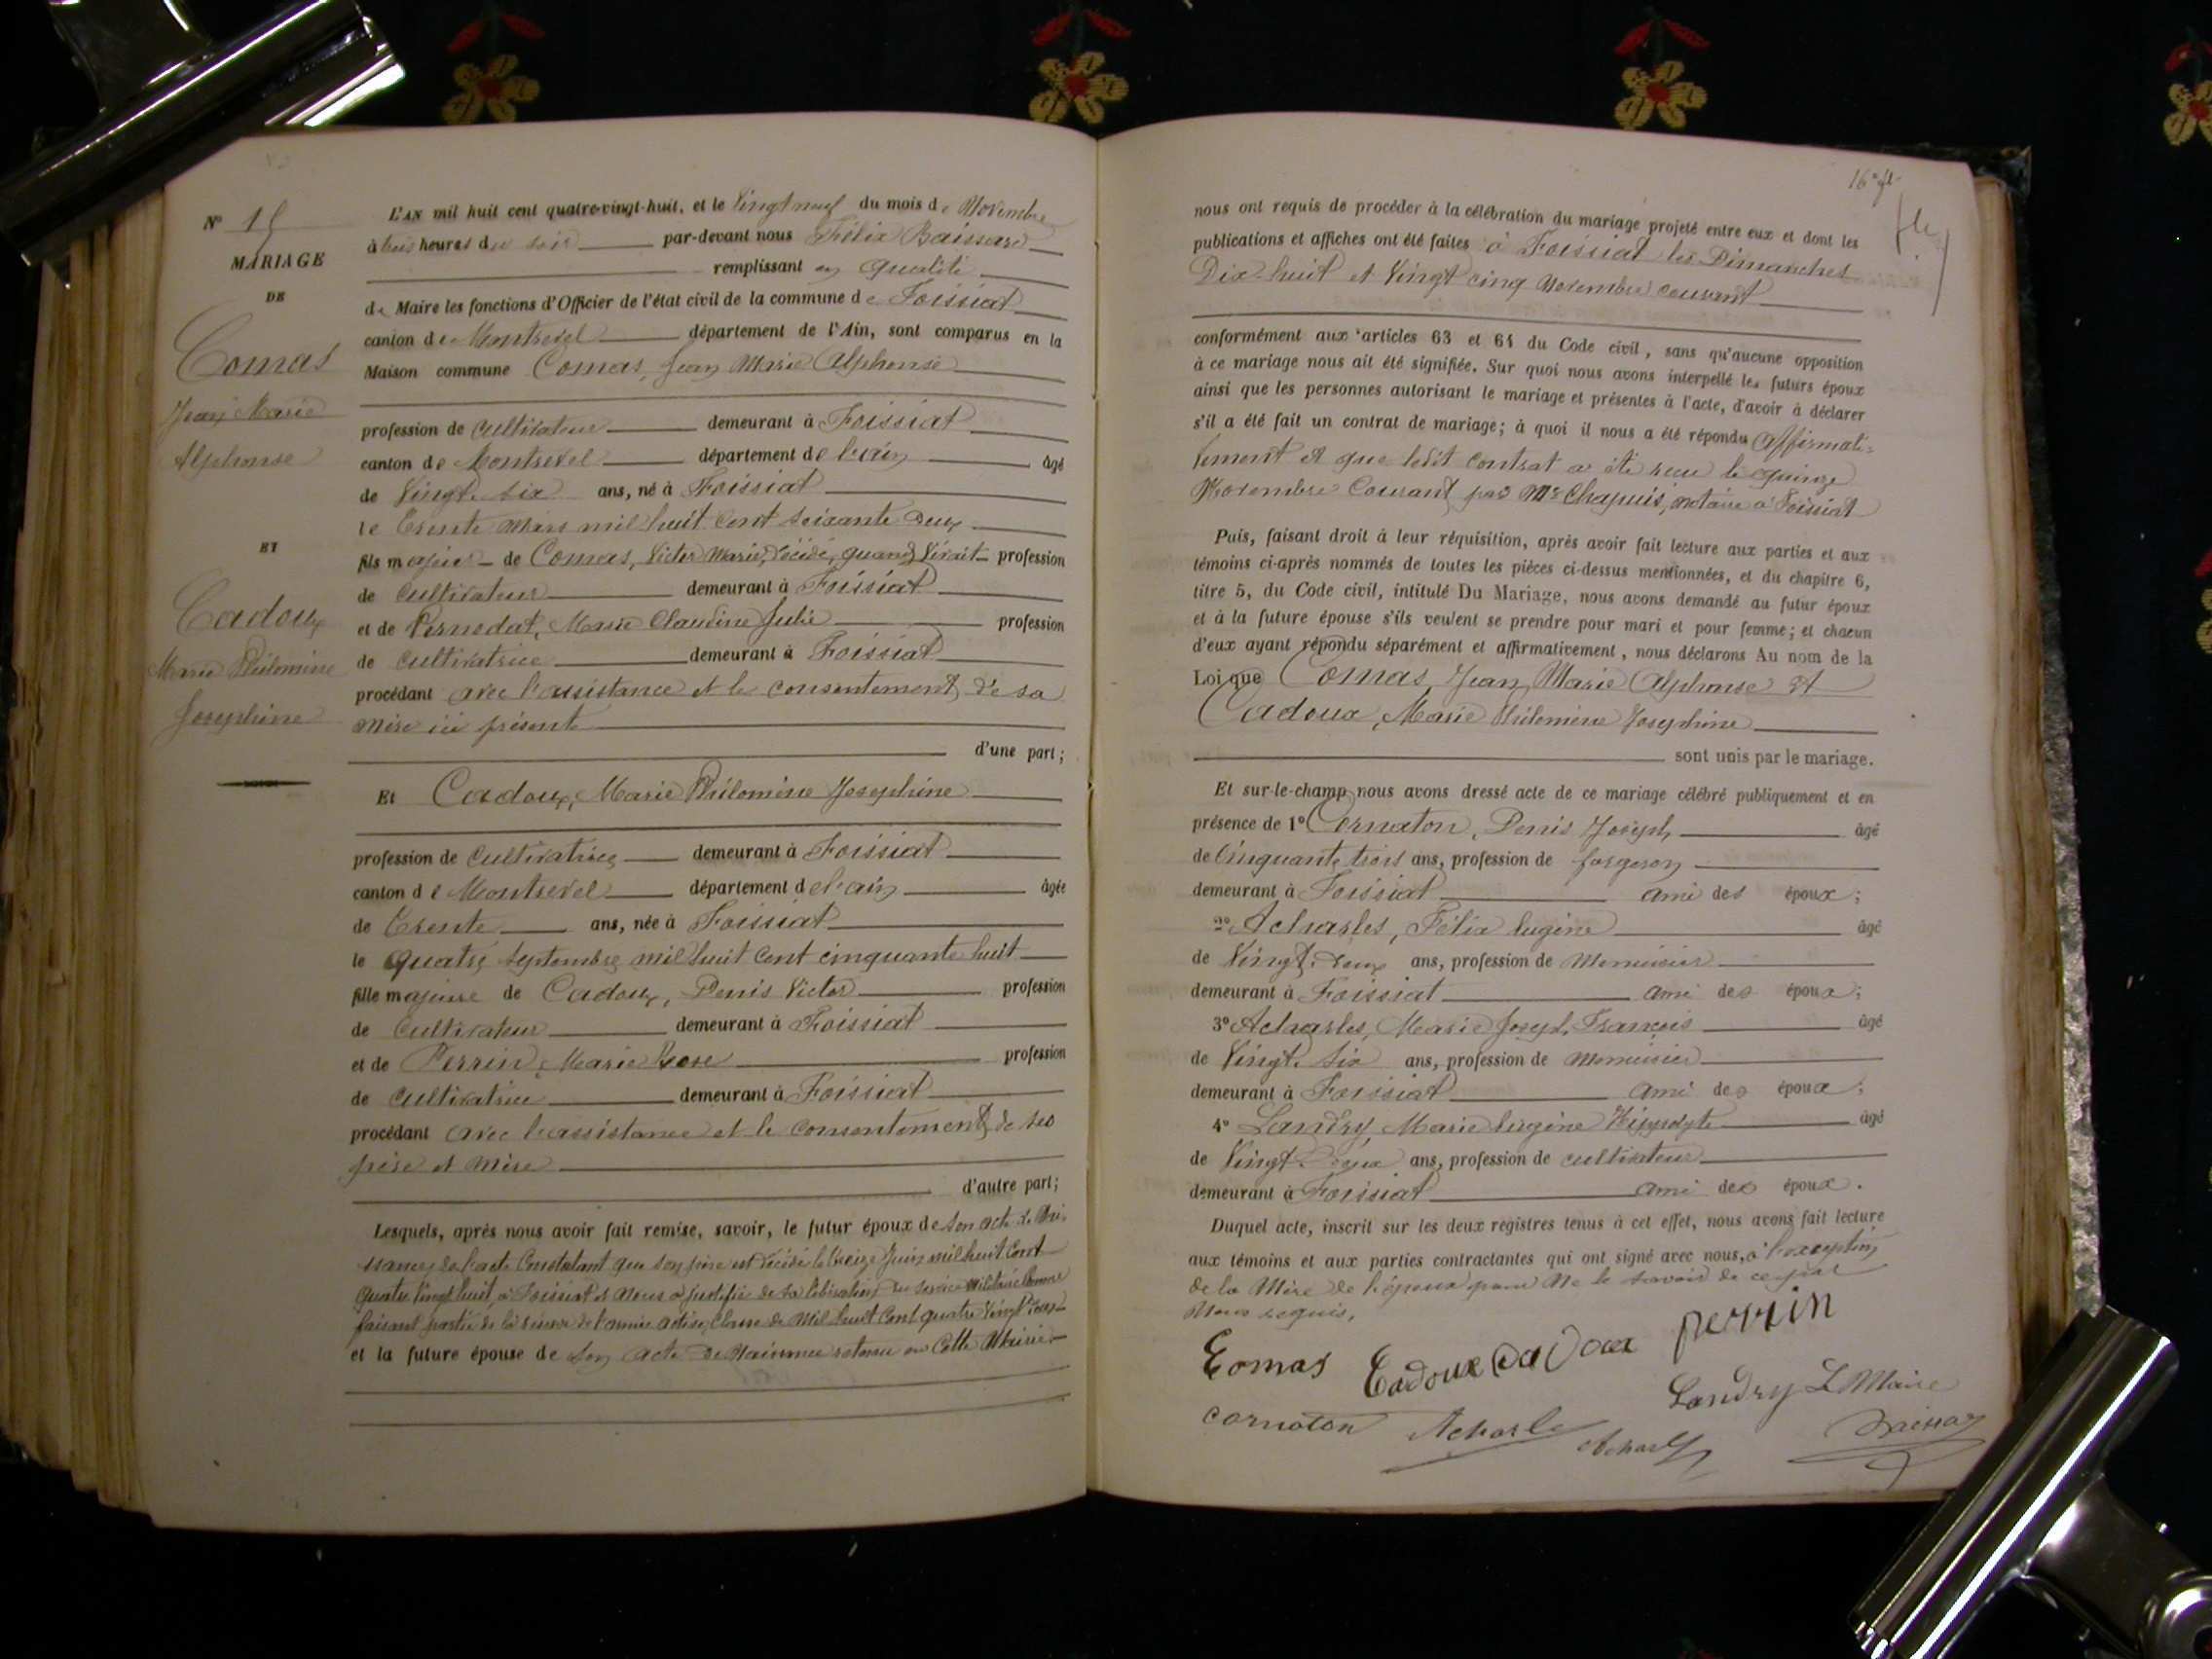 N° 15
MARIAGE
DE
Comas
Jean Marie
Alphonse
ET
Cadoux
Marie Philomène
Josephine
L'AN mil huit cent quatre-vingt-huit, et le Vingt neuf du mois de Novembre
à trois heures du soir par-devant nous Félix Baissard
remplissant en qualité
de Maire les fonctions d'Officier de l'état civil de la commune de Foissiat
canton de Montrevel département de l'Ain, sont comparus en la
Maison commune Comas, Jean Marie Alphonse
profession de cultivateur demeurant à Foissiat
canton de Montrevel département de l'ain âgé
de Vingt six ans, né à Foissiat
le Trente Mars mil huit cent soixante Deux
fils majeur de Comas, Victor Marie, décédé, quand vivait profession
de cultivateur demeurant à Foissiat
et de Pernodat, Marie Claudine Julie profession
de cultivatrice demeurant à Foissiat
procédant avec l'assistance et le consentement de sa
mère ici présente
d'une part;
Et Cadoux, Marie Philomène Josephine
profession de cultivatrice demeurant à Foissiat
canton de Montrevel département de l'ain âgée
de Trente ans, née à Foissiat
le quatre septembre mil huit cent cinquante huit
fille majeure de Cadoux, Denis Victor profession
de cultivateur demeurant à Foissiat
et de Perrin, Marie Rose profession
de cultivatrice demeurant à Foissiat
procédant avec l'assistance et le consentement de ses
père et mère
d'autre part;
Lesquels, après nous avoir fait remise, savoir, le futur époux de son acte de Nai-
ssance, de l'acte constatant que son père est décédé le treize Juin mil huit cent
quatre vingt huit, à Foissiat et nous a justifié de sa libération du service militaire comme
faisant partie de la réserve de l'armée active, classe de mil huit cent quatre vingt deux
et la future épouse de son acte de Naissance retenu en cette Mairie
16e ft
nous ont requis de procéder à la célébration du mariage projeté entre eux et dont les
publications et affiches ont été faites à Foissiat les Dimanches
Dix huit et Vingt cinq Novembre courant
conformément aux articles 63 et 64 du Code civil, sans qu'aucune opposition
à ce mariage nous ait été signifiée. Sur quoi nous avons interpellé les futurs époux
ainsi que les personnes autorisant le mariage et présentes à l'acte, d'avoir à déclarer
s'il a été fait un contrat de mariage; à quoi il nous a été répondu affirmati-
vement et que ledit contrat a été recu le quinze
Novembre Courant par Me Chapuis, notaire à Foissiat
Puis, faisant droit à leur réquisition, après avoir fait lecture aux parties et aux
témoins ci-après nommés de toutes les pièces ci-dessus mentionnées, et du chapitre 6,
titre 5, du Code civil, intitulé Du Mariage, nous avons demandé au futur époux
et à la future épouse s'ils veulent se prendre pour mari et pour femme; et chacun
d'eux ayant répondu séparément et affirmativement, nous déclarons Au nom de la
Loi que Comas, Jean Marie Alphonse et
Cadoux, Marie Philomène Josephine
sont unis par le mariage.
Et sur-le-champ nous avons dressé acte de ce mariage célébré publiquement et en
présence de 1° Cornaton, Denis Joseph âgé
de Cinquante trois ans, profession de forgeron
demeurant à Foissiat ami des époux;
2° Acharles, Félix Eugène âgé
de Vingt-deux ans, profession de Menuisier
demeurant à Foissiat ami des époux;
3° Acharles, Marie Joseph François âgé
de Vingt six ans, profession de Menuisier
demeurant à Foissiat ami des époux;
4° Landry, Marie Eugène Hippolyte âgé
de Vingt-Deux ans, profession de cultivateur
demeurant à Foissiat ami des époux.
Duquel acte, inscrit sur les deux registres tenus à cet effet, nous avons fait lecture
aux témoins et aux parties contractantes qui ont signé avec nous, à l'exception
de la Mère de l'époux pour ne le savoir de ce par
Nous requis,
Comas Cadoux Cadoux perrin
Landry L Maire
cornaton Acharle Acharles Baissard